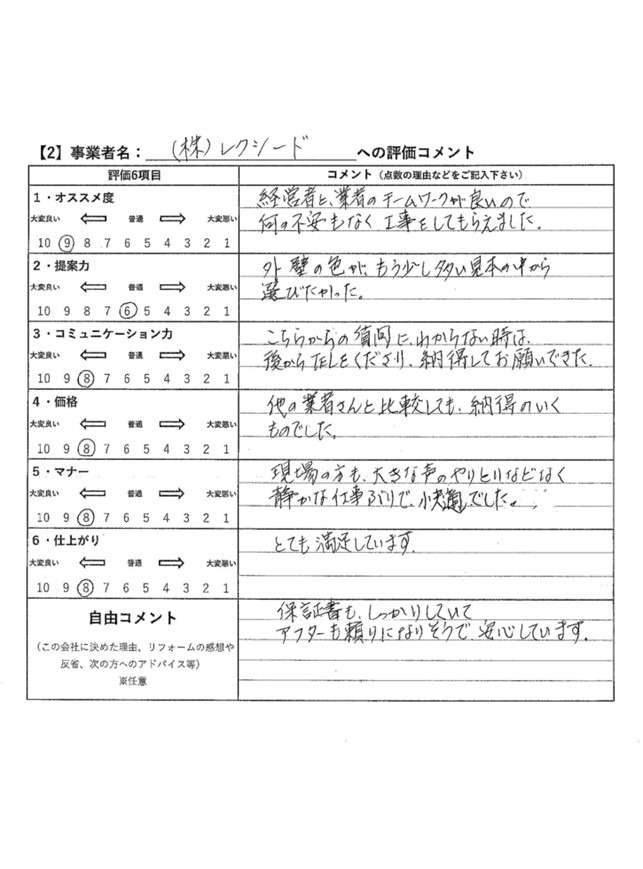 【2】事業者名： (株)レクシード への評価コメント
評価6項目 コメント（点数の理由などをご記入下さい）
1・オススメ度
大変良い 普通 大変悪い
10 9 8 7 6 5 4 3 2 1
経営者と、業者のチームワークが良いので
何の不安もなく工事をしてもらえました。
2・提案力
大変良い 普通 大変悪い
10 9 8 7 6 5 4 3 2 1
外壁の色がもう少し多い見本の中から
選びたかった。
3・コミュニケーション力
大変良い 普通 大変悪い
10 9 8 7 6 5 4 3 2 1
こちらからの質問に、わからない時は、
後からTELをくださり、納得してお願いできた。
4・価格
大変良い 普通 大変悪い
10 9 8 7 6 5 4 3 2 1
他の業者さんと比較しても、納得のいく
ものでした。
5・マナー
大変良い 普通 大変悪い
10 9 8 7 6 5 4 3 2 1
現場の方も、大きな声のやりとりなどなく
静かな仕事ぶりで、快適でした。
6・仕上がり
大変良い 普通 大変悪い
10 9 8 7 6 5 4 3 2 1
とても満足しています。
自由コメント
（この会社に決めた理由、リフォームの感想や
反省、次の方へのアドバイス等）
※任意
保証書も、しっかりしていて
アフターも頼りになりそうで、安心しています。